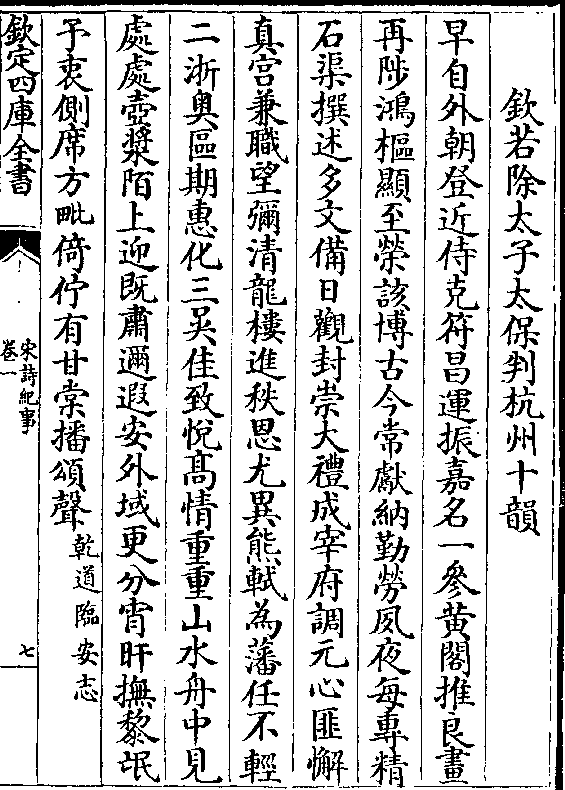 欽若除太子太保判杭州十韻
早自外朝登近侍克符昌運振嘉名一參黄閣推良畫
再陟鴻樞顯至榮該博古今常獻納勤勞夙夜每專精
石渠撰述多文備日觀封崇大禮成宰府調元心匪懈
真宫兼職望彌清龍樓進秩恩尤異熊軾為藩任不輕
二浙奥區期惠化三吴佳致悅髙情重重山水舟中見
處處壺漿陌上迎既肅邇遐安外域更分宵旰撫黎氓
予衷側席方毗倚佇有甘棠播頌聲 乾道臨安志
欽定四庫全書
宋詩紀事
卷一
七